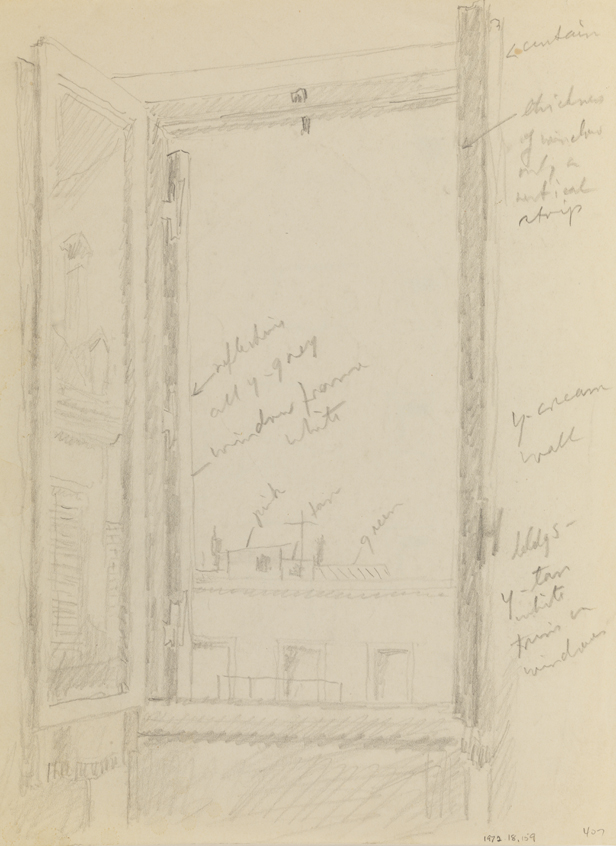 curtain
thickness
of window
only a
vertical
strip
reflections
all y-grey
window frame
white
y-cream
wall
pink
tan
green
bldgs-
y-tan
white
trim on
windows